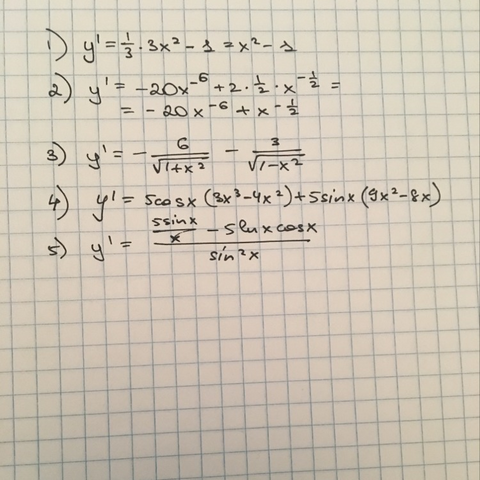 1) y' = 1/3 · 3x² - 1 = x² - 1
2) y' = -20x⁻⁶ + 2 · 1/2 · x^(-1/2) =
= -20x⁻⁶ + x^(-1/2)
3) y' = - 6/√(1+x²) - 3/√(1-x²)
4) y' = 5cosx (3x³-4x²)+5sinx(9x²-8x)
5) y' = (5sinx/x - 5lnxcosx)/sin²x